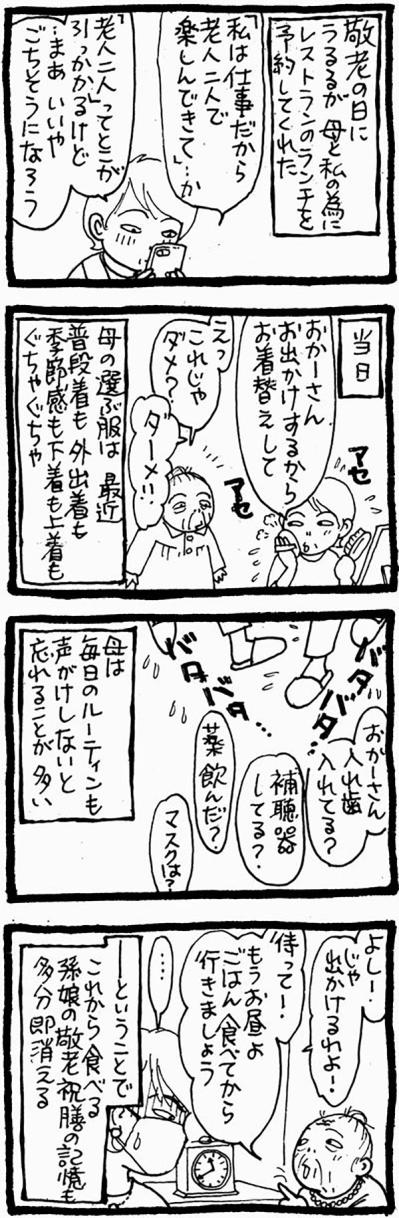 敬老の日に
うるるが 母と私の為に
レストランのランチを
予約してくれた
「私は仕事だから
老人二人で
楽しんできて」…か
「老人二人」ってとこが
引っかかるけど
…まあ いいや
ごちそうになろう
当日
おかーさん
お出かけするから
お着替えして
アセ
アセ
えっ
これじゃ
ダメ?
ダーメ!!
母の選ぶ服は 最近
普段着も 外出着も
季節感も下着も上着も
ぐちゃぐちゃ
バタ
バタ…
バタ
バタ…
おかーさん
入れ歯
入れてる?
補聴器
してる?
薬 飲んだ?
マスクは?
母は
毎日のルーティンも
声がけしないと
忘れることが 多い
よし!
じゃ
出かけるわよ!
待って!
もうお昼よ
ごはん 食べてから
行きましょう
…
――ということで
これから食べる
孫娘の敬老祝膳の記憶も
多分即消える